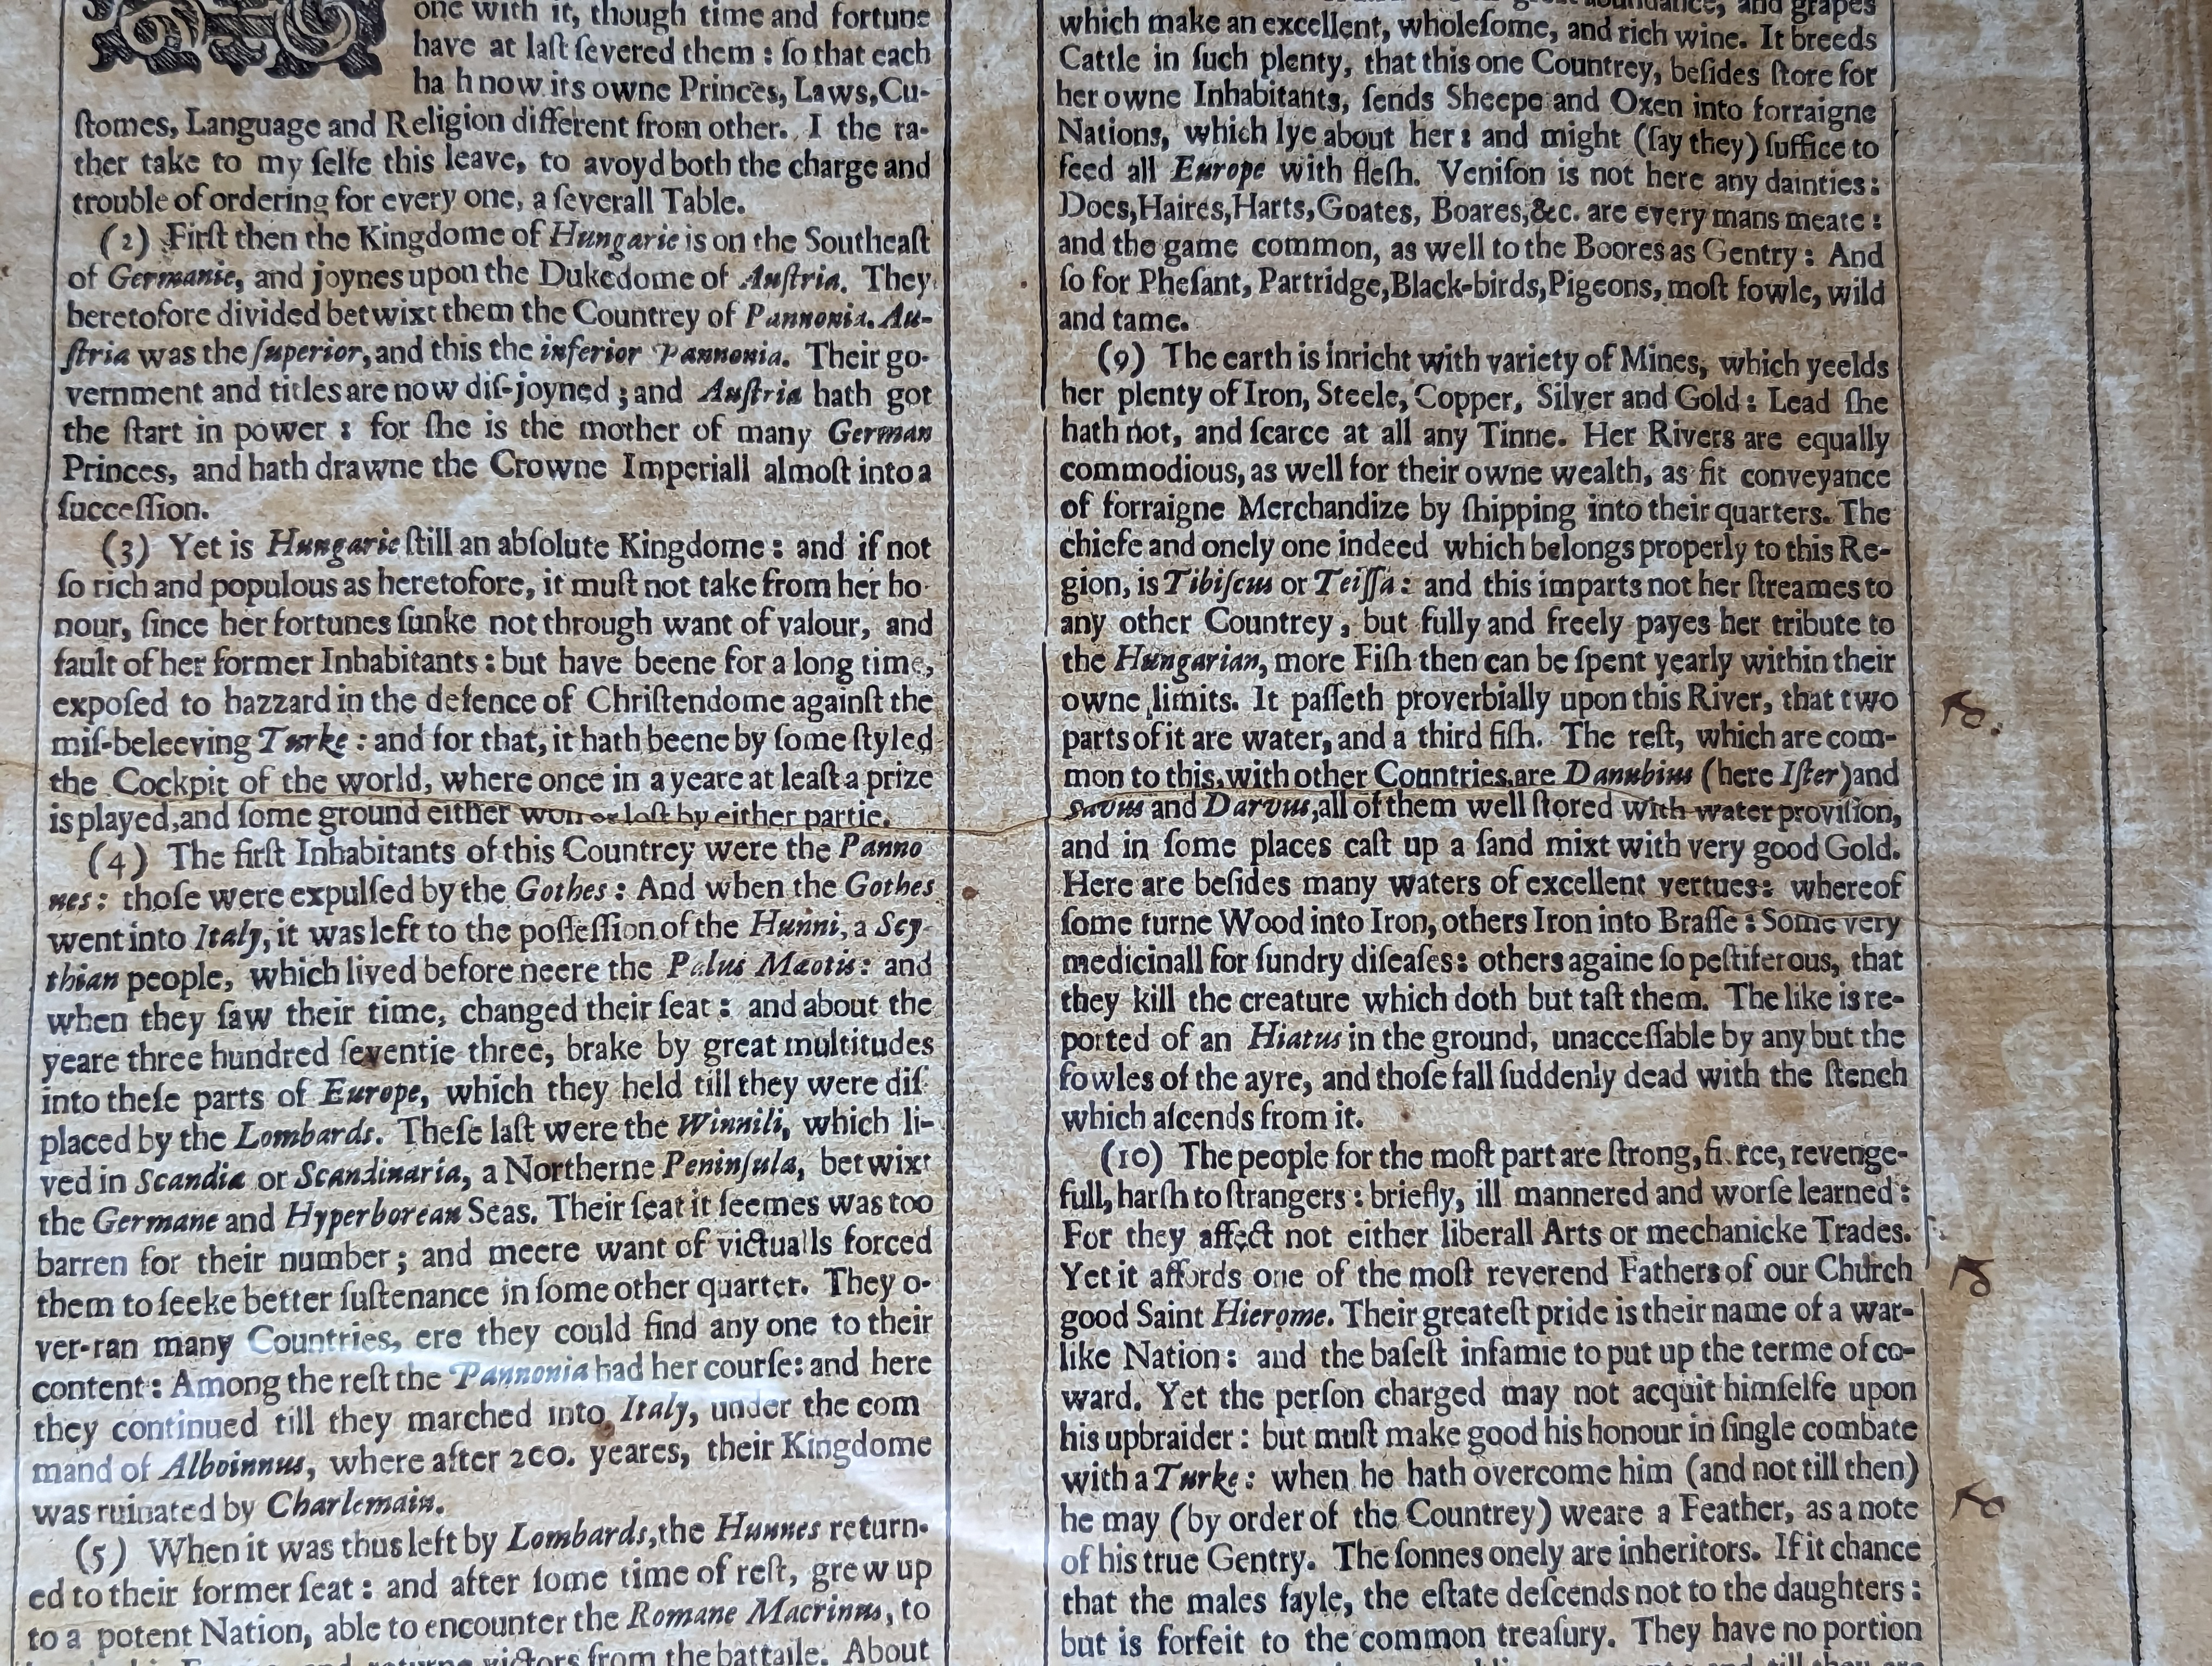 one with it, though time and fortune
have at laſt ſevered them : ſo that each
ha h now its owne Princes, Laws, Cu-
ſtomes, Language and Religion different from other. I the ra-
ther take to my ſelfe this leave, to avoyd both the charge and
trouble of ordering for every one, a ſeverall Table.
(2) Firſt then the Kingdome of Hungarie is on the Southeaſt
of Germanie, and joynes upon the Dukedome of Auſtria. They
heretofore divided betwixt them the Countrey of Pannonia. Au-
ſtria was the ſuperior, and this the inferior Pannonia. Their go-
vernment and titles are now diſ-joyned ; and Auſtria hath got
the ſtart in power : for ſhe is the mother of many German
Princes, and hath drawne the Crowne Imperiall almoſt into a
ſucceſſion.
(3) Yet is Hungarie ſtill an abſolute Kingdome : and if not
ſo rich and populous as heretofore, it muſt not take from her ho-
nour, ſince her fortunes ſunke not through want of valour, and
fault of her former Inhabitants : but have beene for a long time,
expoſed to hazzard in the defence of Chriſtendome againſt the
miſ-beleeving Turke : and for that, it hath beene by ſome ſtyled
the Cockpit of the world, where once in a yeare at leaſt a prize
is played, and ſome ground either won or loſt by either partie.
(4) The firſt Inhabitants of this Countrey were the Panno
nes : thoſe were expulſed by the Gothes : And when the Gothes
went into Italy, it was left to the poſſeſſion of the Hunni, a Scy-
thian people, which lived before neere the Palus Mæotis : and
when they ſaw their time, changed their ſeat : and about the
yeare three hundred ſeventie three, brake by great multitudes
into theſe parts of Europe, which they held till they were diſ-
placed by the Lombards. Theſe laſt were the Winnili, which li-
ved in Scandia or Scandinaria, a Northerne Peninſula, betwixt
the Germane and Hyperborean Seas. Their ſeat it ſeemes was too
barren for their number ; and meere want of victualls forced
them to ſeeke better ſuſtenance in ſome other quarter. They o-
ver-ran many Countries, ere they could find any one to their
content : Among the reſt the Pannonia had her courſe : and here
they continued till they marched into Italy, under the com
mand of Alboinnus, where after 200. yeares, their Kingdome
was ruinated by Charlemain.
(5) When it was thus left by Lombards, the Hunnes return-
ed to their former ſeat : and after ſome time of reſt, grew up
to a potent Nation, able to encounter the Romane Macrinus, to
from the battaile. About
abundance, and grapes
which make an excellent, wholeſome, and rich wine. It breeds
Cattle in ſuch plenty, that this one Countrey, beſides ſtore for
her owne Inhabitants, ſends Sheepe and Oxen into forraigne
Nations, which lye about her : and might (ſay they) ſuffice to
feed all Europe with fleſh. Veniſon is not here any dainties :
Does, Haires, Harts, Goates, Boares, &c. are every mans meate :
and the game common, as well to the Boores as Gentry : And
ſo for Pheſant, Partridge, Black-birds, Pigeons, moſt fowle, wild
and tame.
(9) The earth is inricht with variety of Mines, which yeelds
her plenty of Iron, Steele, Copper, Silver and Gold : Lead ſhe
hath not, and ſcarce at all any Tinne. Her Rivers are equally
commodious, as well for their owne wealth, as fit conveyance
of forraigne Merchandize by ſhipping into their quarters. The
chiefe and onely one indeed which belongs properly to this Re-
gion, is Tibiſcus or Teiſſa : and this imparts not her ſtreames to
any other Countrey, but fully and freely payes her tribute to
the Hungarian, more Fiſh then can be ſpent yearly within their
owne limits. It paſſeth proverbially upon this River, that two
parts of it are water, and a third fiſh. The reſt, which are com-
mon to this, with other Countries, are Danubius (here Iſter) and
Savus and Darvus, all of them well ſtored with water proviſion,
and in ſome places caſt up a ſand mixt with very good Gold.
Here are beſides many waters of excellent vertues : whereof
ſome turne Wood into Iron, others Iron into Braſſe : Some very
medicinall for ſundry diſeaſes : others againe ſo peſtiferous, that
they kill the creature which doth but taſt them. The like is re-
ported of an Hiatus in the ground, unacceſſable by any but the
fowles of the ayre, and thoſe fall ſuddenly dead with the ſtench
which aſcends from it.
(10) The people for the moſt part are ſtrong, fi.rce, revenge-
full, harſh to ſtrangers : briefly, ill mannered and worſe learned :
For they affect not either liberall Arts or mechanicke Trades.
Yet it affords one of the moſt reverend Fathers of our Church
good Saint Hierome. Their greateſt pride is their name of a war-
like Nation : and the baſeſt infamie to put up the terme of co-
ward. Yet the perſon charged may not acquit himſelfe upon
his upbraider : but muſt make good his honour in ſingle combate
with a Turke : when he hath overcome him (and not till then)
he may (by order of the Countrey) weare a Feather, as a note
of his true Gentry. The ſonnes onely are inheritors. If it chance
that the males fayle, the eſtate deſcends not to the daughters :
but is forfeit to the common treaſury. They have no portion